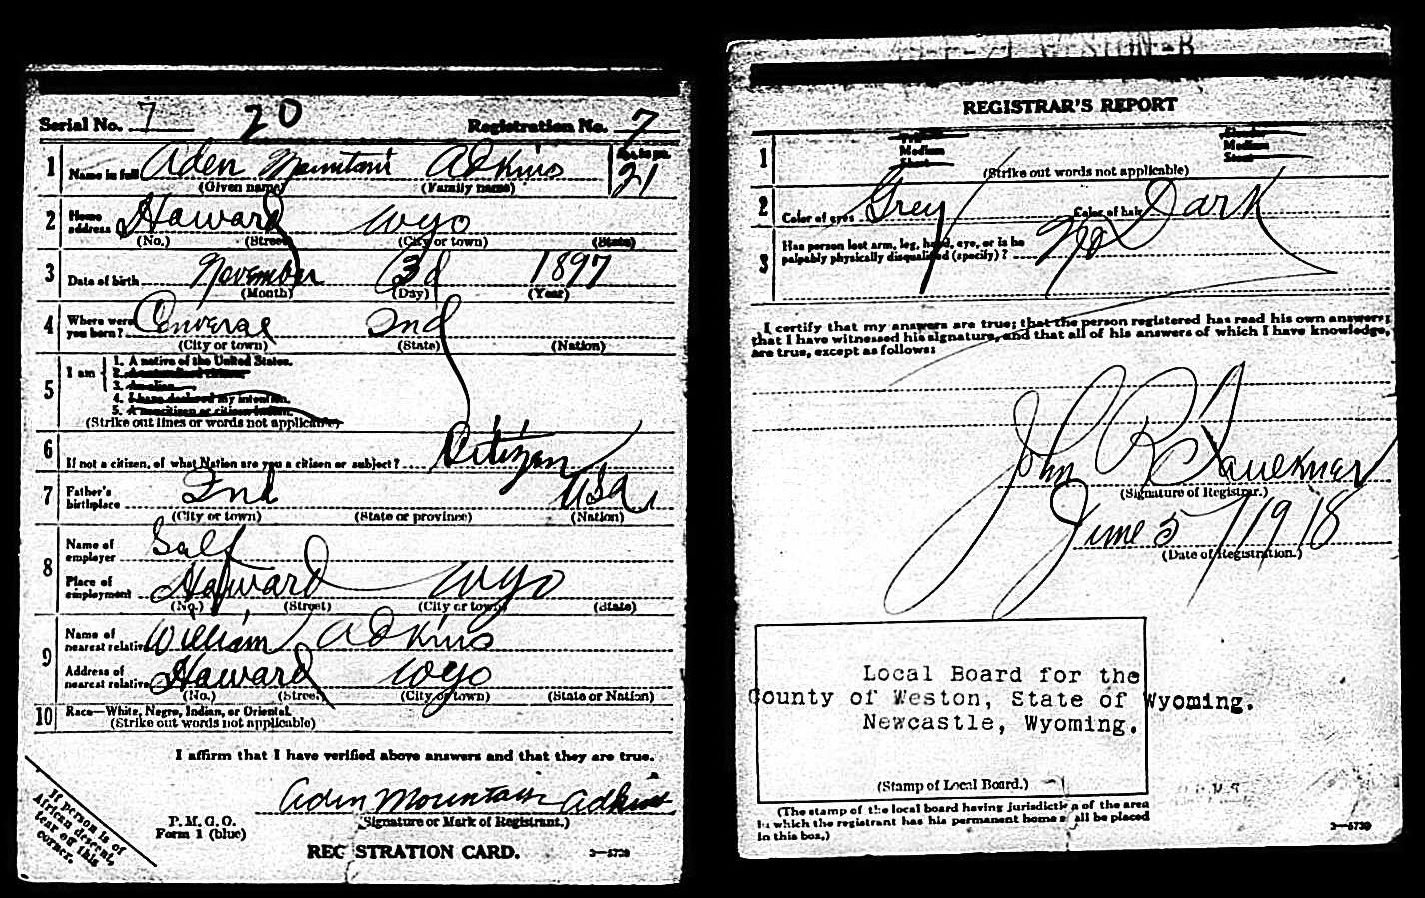 Serial No. 7 20 Registration No. 7
1 Name in full Aden Mountain Adkins 21
(Given name) (Family name)
2 Home address Haward Wyo
(No.) (Street) (City or town) (State)
3 Date of birth November 3d 1897
(Month) (Day) (Year)
4 Where were you born? Converse Ind
(City or town) (State) (Nation)
5 I am
1. A native of the United States.
2. A naturalized citizen.
3. An alien.
4. I have declared my intention.
5. A noncitizen or citizen Indian.
(Strike out lines or words not applicable)
6 If not a citizen, of what Nation are you a citizen or subject? Citizen
7 Father's birthplace Ind USA
(City or town) (State or province) (Nation)
8 Name of employer Salf
Place of employment Haward Wyo
(No.) (Street) (City or town) (State)
9 Name of nearest relative William Adkins
Address of nearest relative Haward Wyo
(No.) (Street) (City or town) (State or Nation)
10 Race—White, Negro, Indian, or Oriental.
(Strike out words not applicable)
I affirm that I have verified above answers and that they are true.
Aden Mountain Adkins
(Signature or Mark of Registrant.)
P. M. G. O.
Form 1 (blue)
REGISTRATION CARD.
3—5730
If person is of
African descent,
tear off this
corner.
REGISTRAR'S REPORT
1
Tall Slender
Medium Medium
Short Stout
(Strike out words not applicable)
2 Color of eyes Grey Color of hair Dark
3 Has person lost arm, leg, hand, eye, or is he
palpably physically disqualified (specify)? No
I certify that my answers are true; that the person registered has read his own answers;
that I have witnessed his signature, and that all of his answers of which I have knowledge,
are true, except as follows:
John R Faulkner
(Signature of Registrar.)
June 5 1918
(Date of Registration.)
Local Board for the
County of Weston, State of Wyoming.
Newcastle, Wyoming.
(Stamp of Local Board.)
(The stamp of the local board having jurisdiction of the area
in which the registrant has his permanent home shall be placed
in this box.)
3—5730